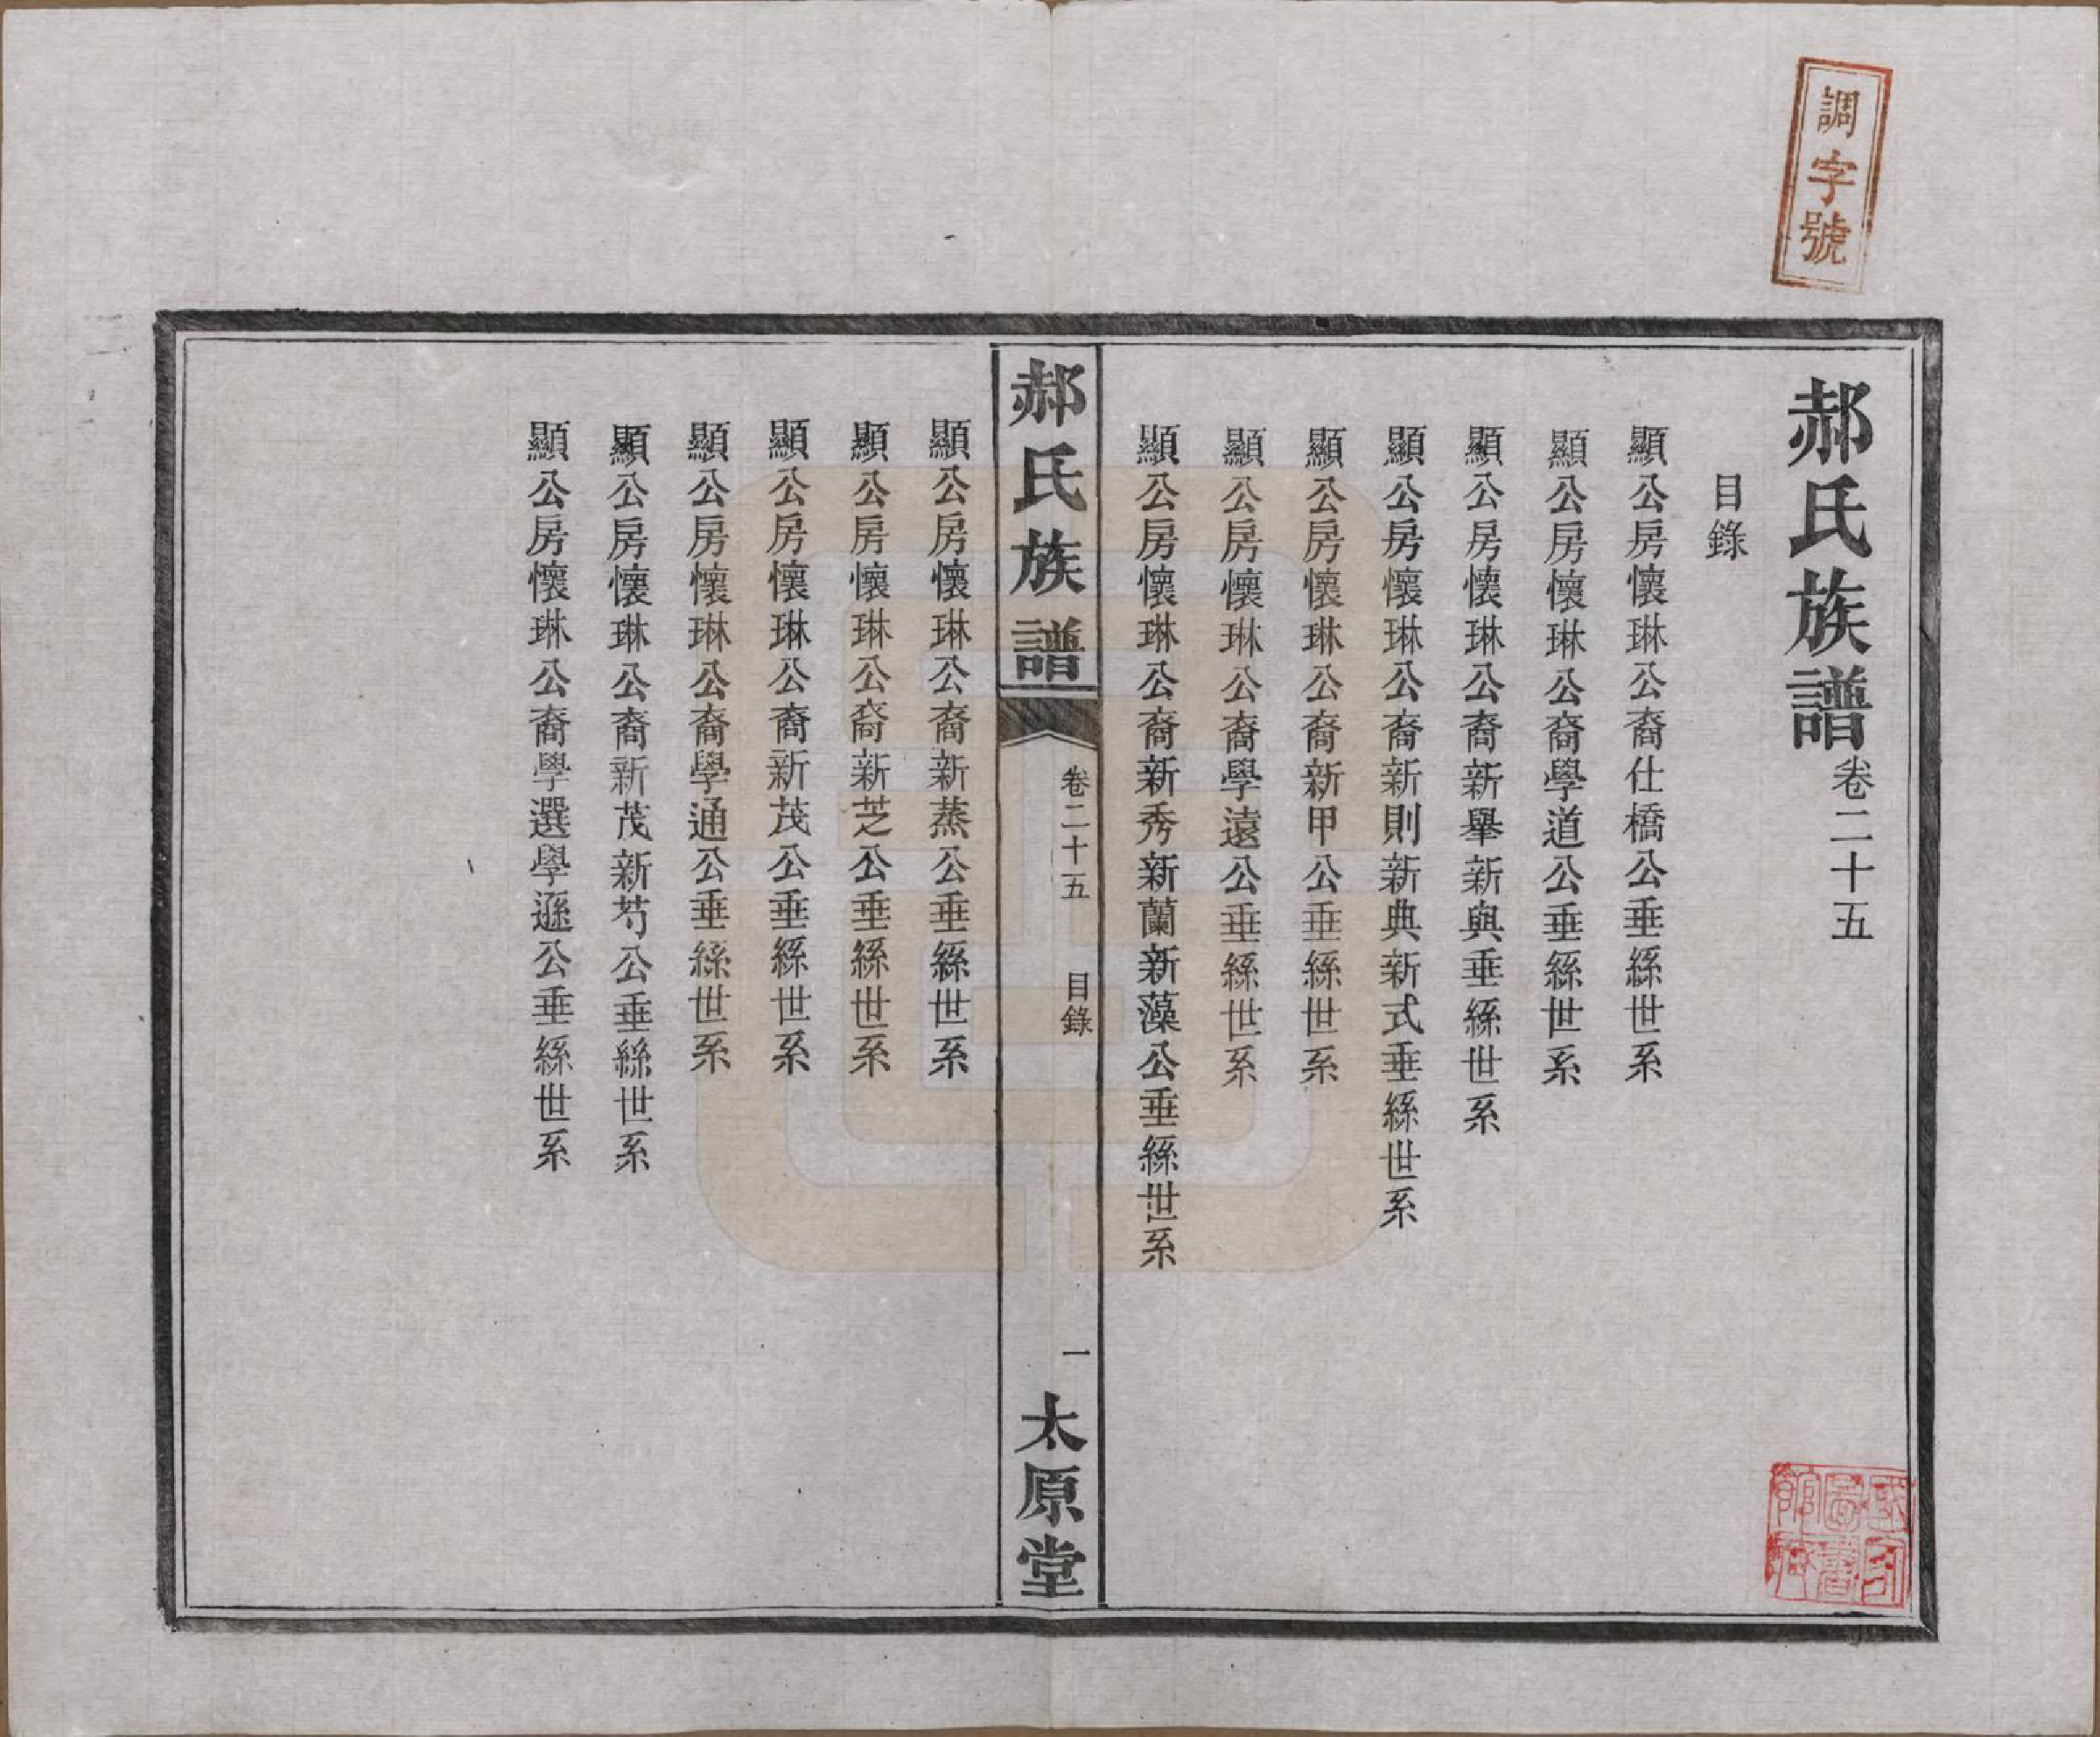 調字號
郝氏族譜卷二十五
目錄
顯公房懷琳公裔仕橋公垂絲世系
顯公房懷琳公裔學道公垂絲世系
顯公房懷琳公裔新舉新與垂絲世系
顯公房懷琳公裔新則新典新式垂絲世系
顯公房懷琳公裔新甲公垂絲世系
顯公房懷琳公裔學遠公垂絲世系
顯公房懷琳公裔新秀新蘭新藻公垂絲世系
郝氏族譜
卷二十五 目錄
一
太原堂
顯公房懷琳公裔新蒸公垂絲世系
顯公房懷琳公裔新芝公垂絲世系
顯公房懷琳公裔新茂公垂絲世系
顯公房懷琳公裔學通公垂絲世系
顯公房懷琳公裔新茂新芍公垂絲世系
顯公房懷琳公裔學選學遜公垂絲世系